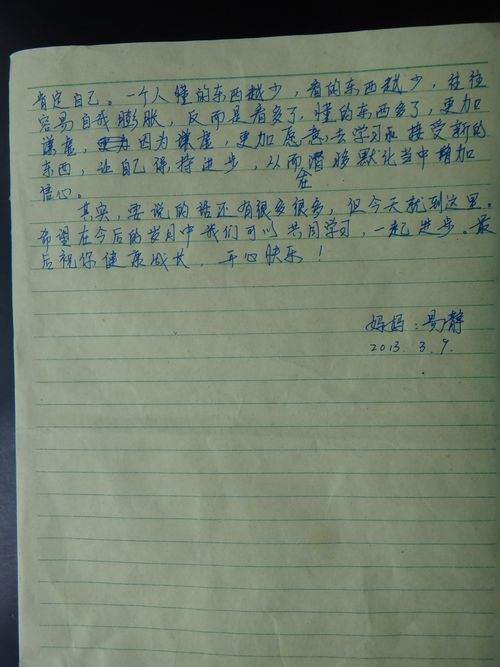 肯定自己。一个人懂的东西越少，看的东西越少，往往
容易自我膨胀，反而是看多了，懂的东西多了，更加
谦虚，因为谦虚，更加愿意去学习和接受新的
东西，让自己保持进步，从而在潜移默化当中增加
信心。
其实，要说的话还有很多很多，但今天就到这里。
希望在今后的岁月中我们可以共同学习，一起进步。最
后祝你健康成长，开心快乐！
妈妈：易静
2013.3.9.